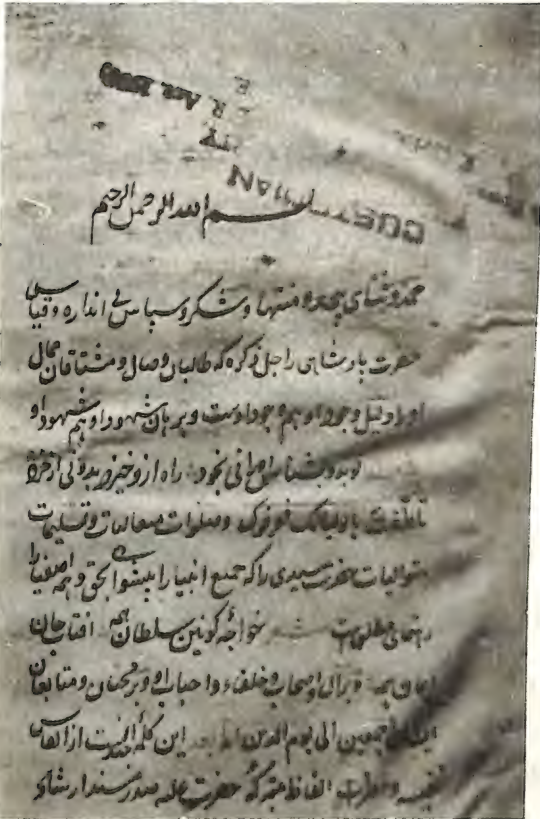 بسم الله الرحمن الرحیم
حمد و ثنای بیحد و منتها و شکر و سپاس بی اندازه و قیاس
حضرت پادشاهی را جل ذکره که طالبان وصال و مشتاقان جمال
او را دلیل وجود او هم وجود اوست و برهان شهود او هم شهود او
تو بدو بشناس او را نی بخود راه ازو خیزد بدو نی از خرد
و صلوات صافیات و تسلیمات
متوالیات حضرت سیدی را که جمیع انبیا را پیشوای بحق و همه اصفیا را
رهنمای مطلق است شعر خواجه کونین سلطان همه آفتاب جان
ایمان همه و بر آل و اصحاب و خلفاء و احباب او و بر محبان و متابعان
اجمعین الی یوم الدین اما بعد این کلمه از انفاس
نفیسه و الفاظ متبرکه حضرت صدر مسند ارشاد